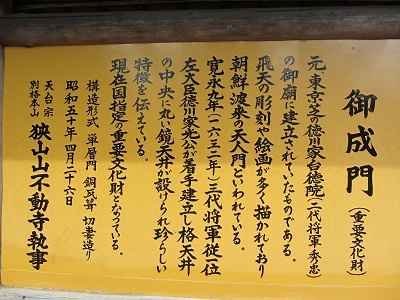 御成門（重要文化財）
元、東京芝の徳川家台徳院（二代将軍・秀忠）
の御廟に建立されていたものである。
飛天の彫刻や絵画が多く描かれており
朝鮮渡来の天人門といわれている。
寛永九年（一六三二年）三代将軍従一位
左大臣徳川家光公が着手建立し格天井
の中央に丸い鏡天井が設けられ珍らしい
特徴を伝えている。
現在国指定の重要文化財となっている。
構造形式 単層門 銅瓦葺 切妻造り
昭和五十年四月二十六日
天台宗
別格本山 狭山山不動寺執事